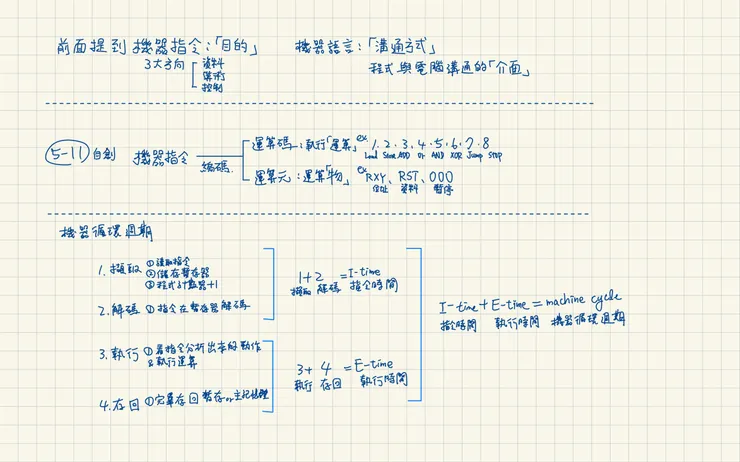 前面提到 機器指令：「目的」 機器語言：「溝通方式」
3大方向 資料 程式與電腦溝通的「介面」
算術
控制
5-11 自創 機器指令 編碼 運算碼：執行「運算」 ex 1、2、3、4、5、6、7、8
Load Store ADD Or AND XOR Jump STOP
運算元：運算「物」 ex RXY、RST、000
位址 資料 暫停
機器循環週期
1. 擷取 ①讀取指令
②儲存暫存器
③程式計數器+1
1+2 = I-time
擷取 解碼 指令時間
2. 解碼 ①指令在暫存器解碼
I-time + E-time = machine cycle
指令時間 執行時間 機器循環週期
3. 執行 ①看指令分析出來的動作
&執行運算
3+4 = E-time
執行 存回 執行時間
4. 存回 ①完畢存回暫存or主記憶體